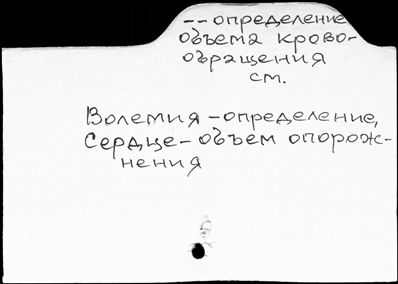 -- определение
объема крово-
обращения
см.
Волемия - определение,
Сердце - объем опорож-
нения